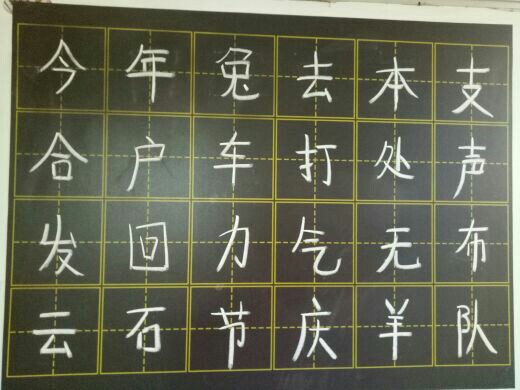 今年兔去本支
合户车打处声
发回力气无布
云石节庆羊队